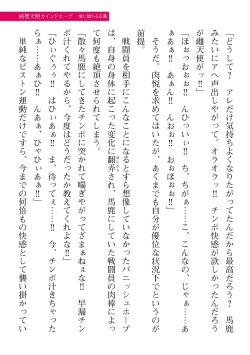 「どうして？　アレだけ気持ちよくなりたがってやがったんだから最高だろう？　馬鹿
みたいにアヘ声出しやがって。オラオラッ、チンポ快感が欲しかったんだろうが
が雌天使がッ！」
「ほぉっぉぉぉ！　んひっぃぃ！　ち、ちがぁ……こ、こんなの、じゃぁ……ぁ
ぁぁぁぁ！　んぉぉぉ！　おぉほぉぉ！」
　そうだ、肉悦を求めてはいたが、あくまでも自分が優位な状況下でというのが
前提。
　戦闘員を相手にこんなことになるとすら想像していなかったバニッシュホープ
は、自身の身体に起こった変化に翻弄され、馬鹿にしていた戦闘員の肉棒によっ
て何度も絶頂させられてしまう。
「散々馬鹿にしてきたチンポに突かれて喘ぎやがってざまぁねぇな！　早漏チン
ポ汁くれてやるから、今度はどうだったか教えてくれよな！」
「ひぃぐぅぅ！　はひぃぃ！　ま、待ってぇ……！　今、チンポ汁きちゃった
らぁ……あひぅ！　んあぁ、ひゃひぃぁぁ！」
　単純なピストン運動だけですら、今までの何倍もの快感として襲い掛かってい